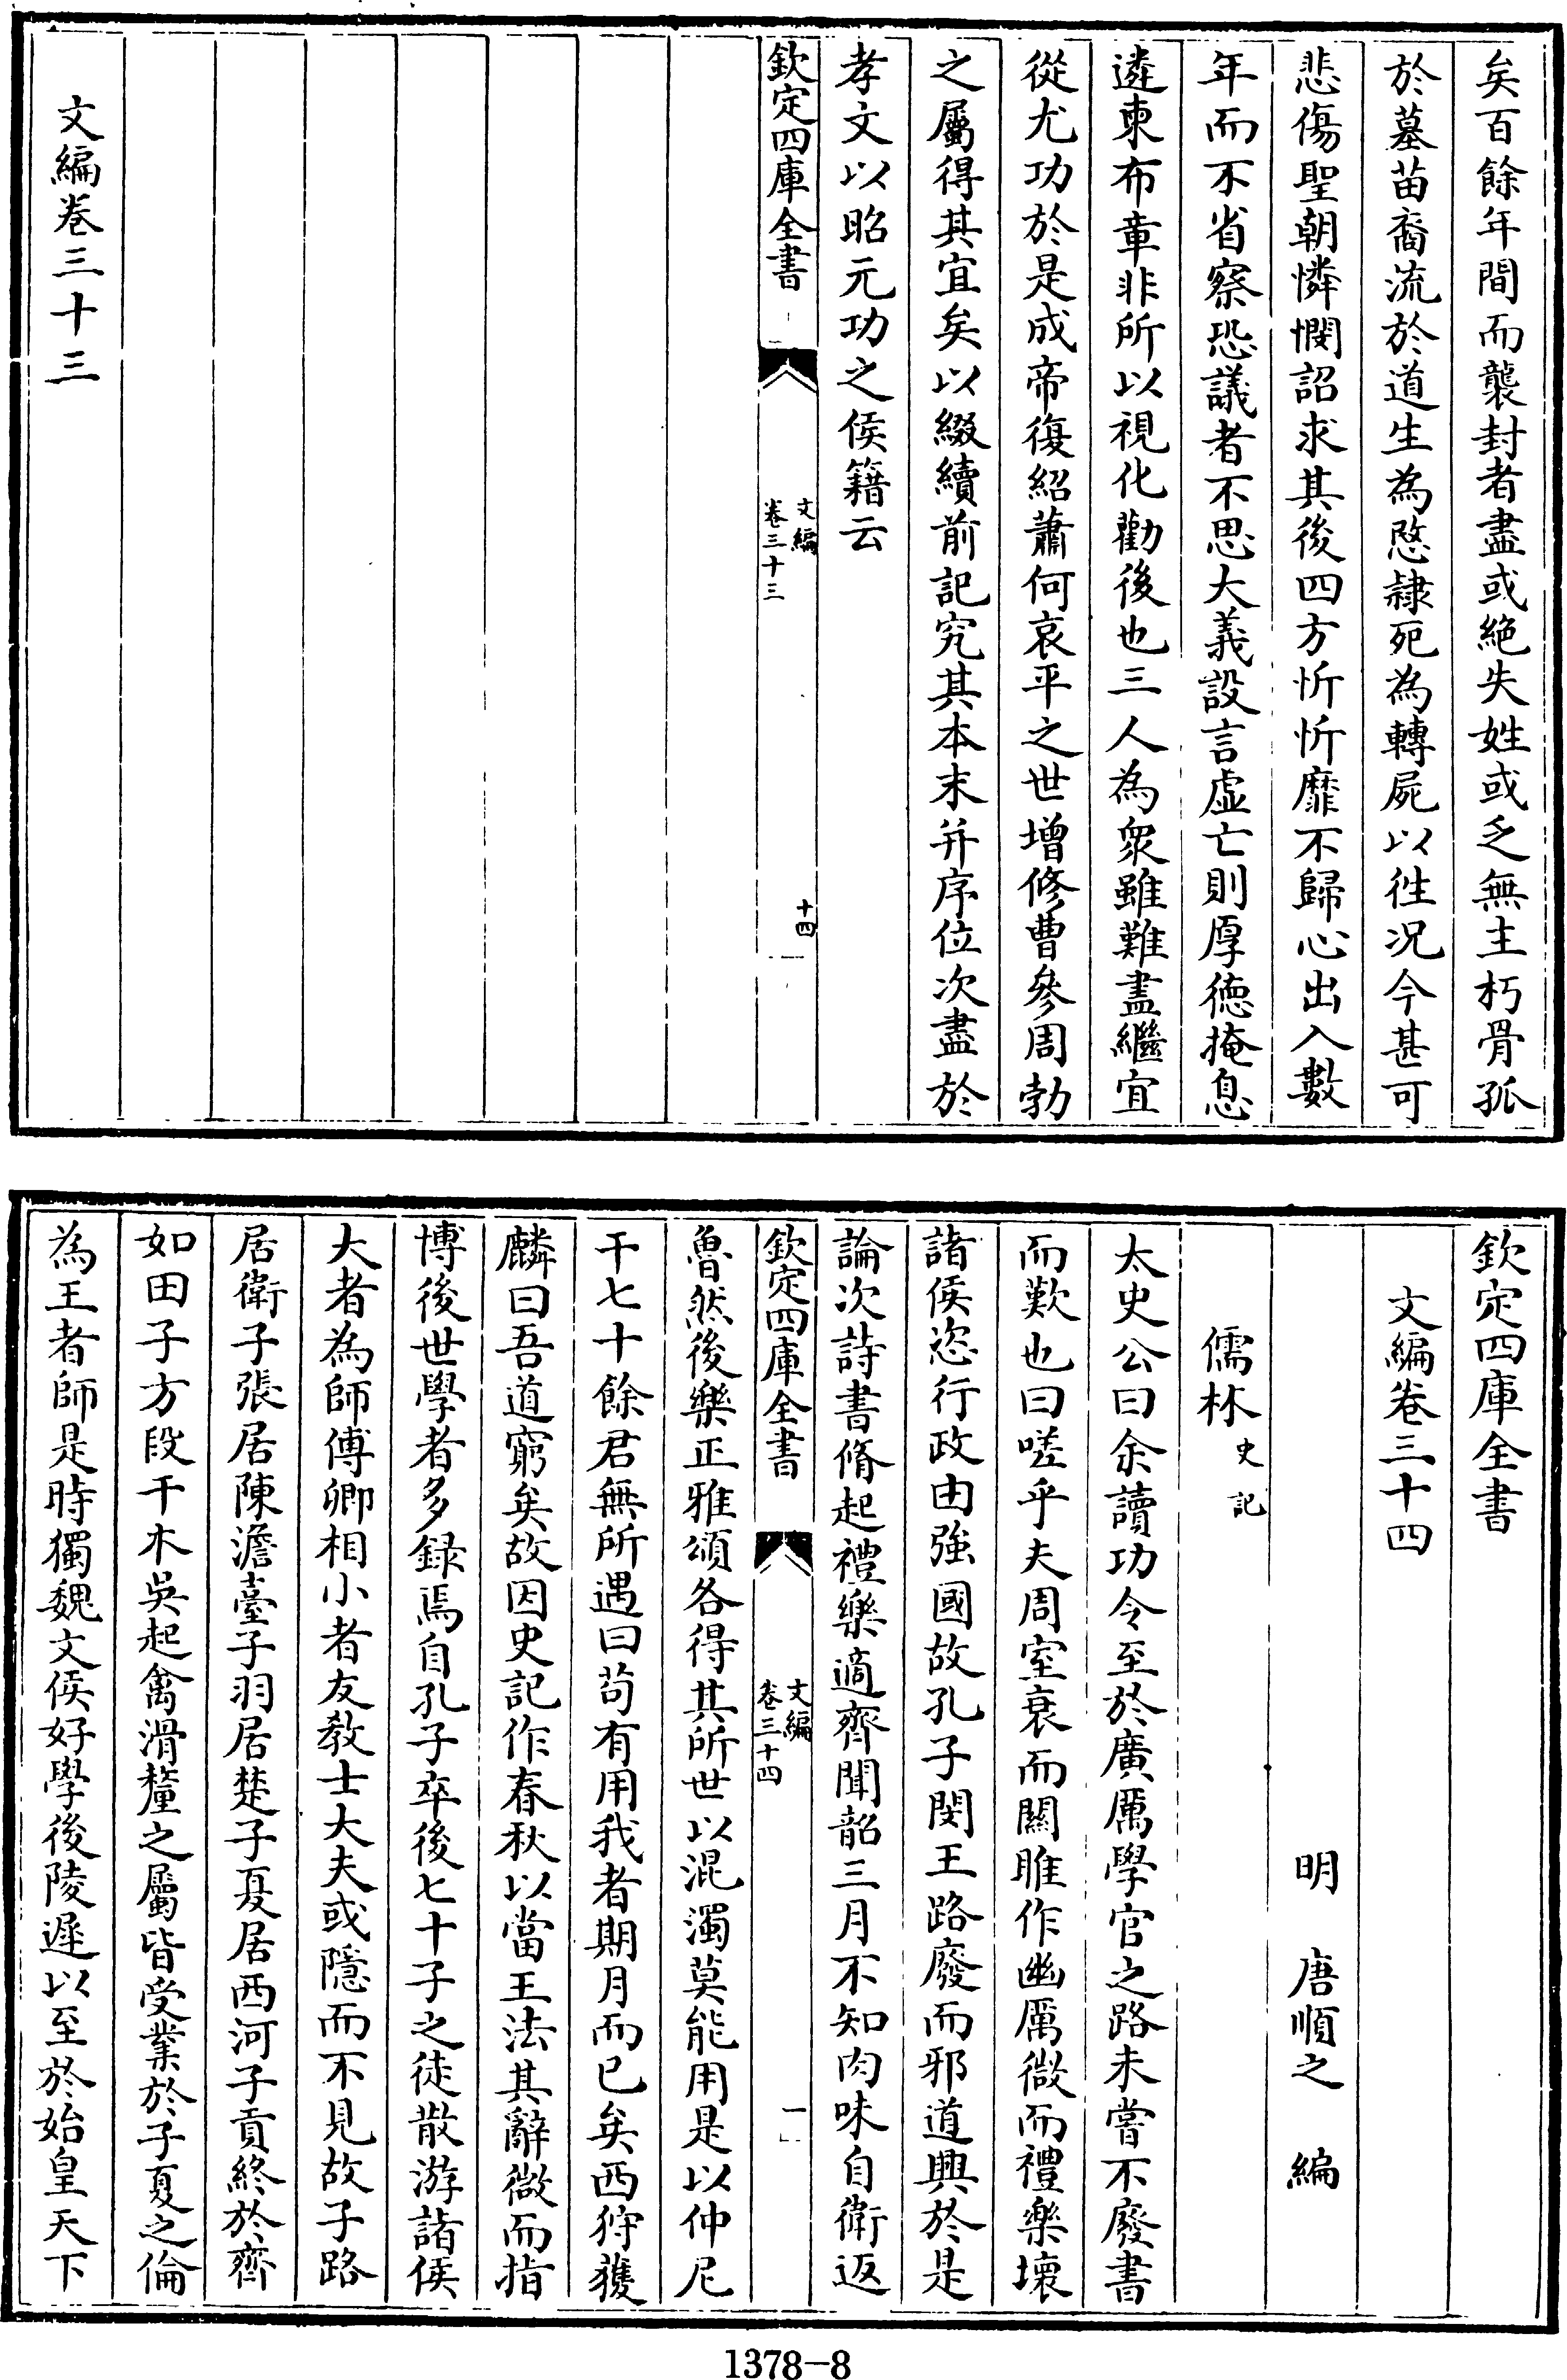 矣百餘年間而襲封者盡或絶失姓或乏無主朽骨孤
於墓苗裔流於道生為愍隸死為轉屍以徃况今甚可
悲傷聖朝憐憫詔求其後四方忻忻靡不歸心出入數
年而不省察恐議者不思大義設言虛亡則厚徳掩息
遴柬布章非所以視化勸後也三人為衆雖難盡繼宜
從尤功於是成帝復紹蕭何哀平之世增修曹參周勃
之屬得其宜矣以綴續前記究其本末并序位次盡於
孝文以昭元功之侯籍云
欽定四庫全書
文編
卷三十三
十四
文編卷三十三
欽定四庫全書
文編卷三十四
明 唐順之 編
儒林史記
太史公曰余讀功令至於廣厲學官之路未嘗不廢書
而歎也曰嗟乎夫周室衰而關雎作幽厲微而禮樂壞
諸侯恣行政由強國故孔子閔王路廢而邪道興於是
論次詩書脩起禮樂適齊聞韶三月不知肉味自衛返
欽定四庫全書
文編
卷三十四
一
魯然後樂正雅頌各得其所世以混濁莫能用是以仲尼
干七十餘君無所遇曰苟有用我者期月而已矣西狩獲
麟曰吾道窮矣故因史記作春秋以當王法其辭微而指
博後世學者多録焉自孔子卒後七十子之徒散游諸侯
大者為師傅卿相小者友教士大夫或隱而不見故子路
居衛子張居陳澹臺子羽居楚子夏居西河子貢終於齊
如田子方段干木吳起禽滑釐之屬皆受業於子夏之倫
為王者師是時獨魏文侯好學後陵遲以至於始皇天下
1378-8